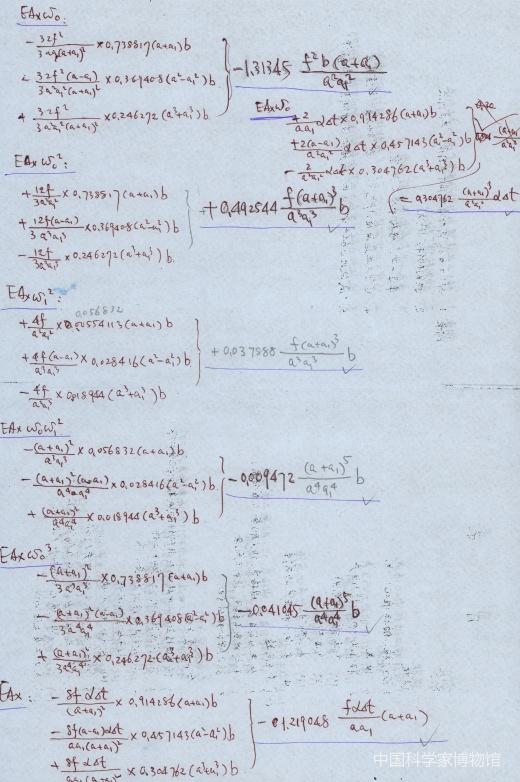 EA×ω₀:
- 32f²/3aa₁(a+a₁)² × 0.738817(a+a₁)b
+ 32f²(a-a₁)/3a²a₁²(a+a₁)² × 0.369408(a²-a₁²)b
+ 32f²/3a²a₁²(a+a₁)² × 0.246272(a³+a₁³)b
-1.31345 f²b(a+a₁)/a²a₁²
EA×ω₀
+ 2/aa₁ αΔt × 0.914286(a+a₁)b
+ 2(a-a₁)/a²a₁² αΔt × 0.457143(a²-a₁²)b
- 2/a²a₁² αΔt × 0.304762(a³+a₁³)b
= 0.304762 (a+a₁)³/a²a₁² αΔt
EA×ω₀²:
+ 12f/3a²a₁² × 0.738817(a+a₁)b
+ 12f(a-a₁)/3a³a₁³ × 0.369408(a²-a₁²)b
- 12f/3a³a₁³ × 0.246272(a³+a₁³)b
+0.492544 f(a+a₁)³/a³a₁³ b
EA×ω₁²:
0.056832
+ 4f/a²a₁² × 0.0554113(a+a₁)b
+ 4f(a-a₁)/a³a₁³ × 0.028416(a²-a₁²)b
- 4f/a³a₁³ × 0.018944(a³+a₁³)b
+0.037888 f(a+a₁)³/a³a₁³ b
EA×ω₀ω₁²
- (a+a₁)²/a³a₁³ × 0.056832(a+a₁)b
- (a+a₁)²(a-a₁)/a⁴a₁⁴ × 0.028416(a²-a₁²)b
+ (a+a₁)²/a⁴a₁⁴ × 0.018944(a³+a₁³)b
-0.009472 (a+a₁)⁵/a⁴a₁⁴ b
EA×ω₀³
- (a+a₁)²/3a³a₁³ × 0.738817(a+a₁)b
- (a+a₁)²(a-a₁)/3a⁴a₁⁴ × 0.369408(a²-a₁²)b
+ (a+a₁)²/3a⁴a₁⁴ × 0.246272(a³+a₁³)b
-0.041045 (a+a₁)⁵/a⁴a₁⁴ b
EA×:
- 8fαΔt/(a+a₁)² × 0.914286(a+a₁)b
- 8f(a-a₁)αΔt/aa₁(a+a₁)² × 0.457143(a²-a₁²)b
+ 8fαΔt/aa₁(a+a₁)² × 0.304762(a³+a₁³)b
-1.219048 fαΔt/aa₁ (a+a₁)
中国科学家博物馆